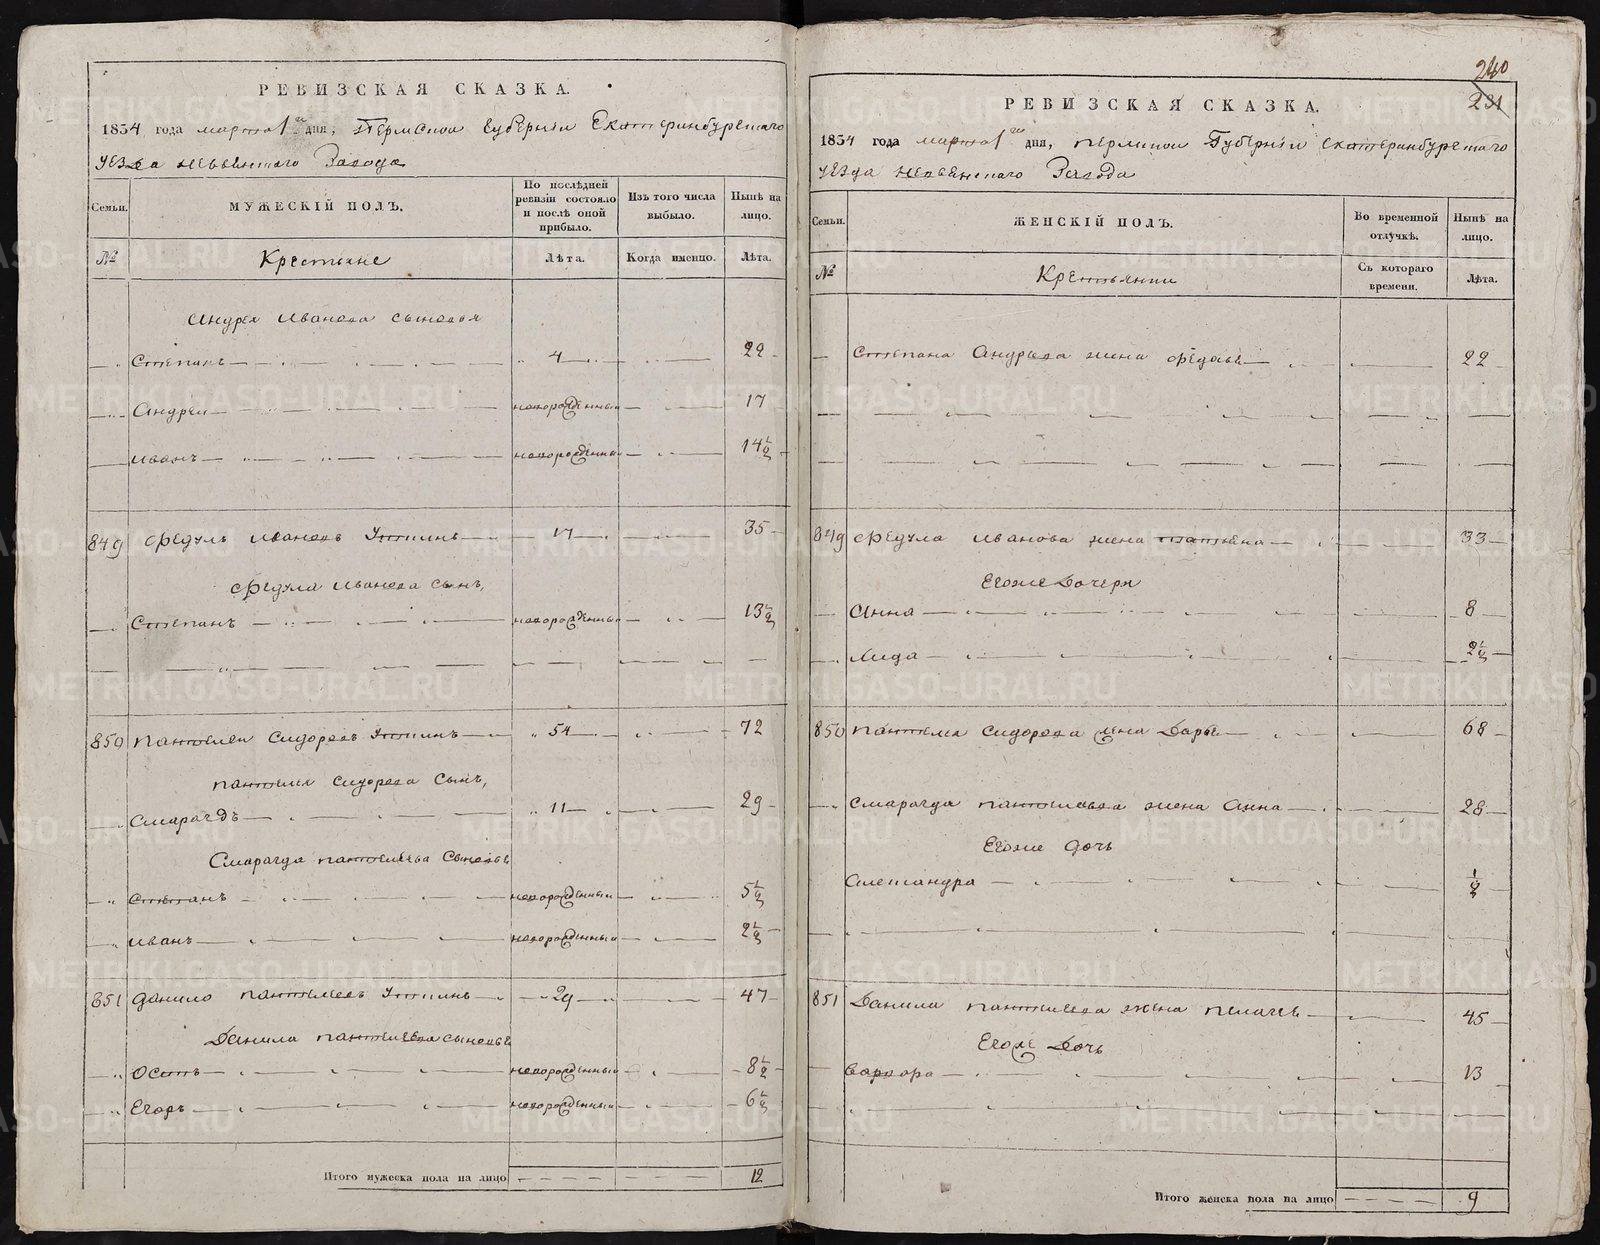 РЕВИЗСКАЯ СКАЗКА.
1834 года марта 1 дня, Пермской Губернiи Екатеринбургскаго
уезда Невьянскаго Завода
Семьи. МУЖЕСКIЙ ПОЛЪ. По послѣдней ревизiи состояло и послѣ оной прибыло. Изъ того числа выбыло. Нынѣ на лицо.
№ Крестьяне Лѣта. Когда именно. Лѣта.
Андрея Иванова сыновья
Степанъ 4 22
Андрей новорожденный 17
Иванъ новорожденный 14 1/2
849 Федулъ Ивановъ 17 35
Федула Иванова сынъ,
Степанъ новорожденный 13 1/2
850 Пантелей Сидоровъ 54 72
Пантелея Сидорова сынъ,
Смарагдъ 11 29
Смарагда Пантелеева сыновья
Степанъ новорожденный 5 1/2
Иванъ новорожденный 2 1/2
851 Данило Пантелеевъ 29 47
Данила Пантелеева сыновья
Осипъ новорожденный 8 1/2
Егоръ новорожденный 6 1/2
Итого мужеска пола на лицо 12
240
231
РЕВИЗСКАЯ СКАЗКА.
1834 года марта 1 дня, Пермской Губернiи Екатеринбургскаго
уезда Невьянскаго Завода
Семьи. ЖЕНСКIЙ ПОЛЪ. Во временной отлучкѣ. Нынѣ на лицо.
№ Крестьянки Съ котораго времени. Лѣта.
Степана Андреева жена Федосья 22
849 Федула Иванова жена Татьяна 33
Егоже дочери
Анна 8
Лида 2 1/2
850 Пантелея Сидорова жена Дарья 68
Смарагда Пантелеева жена Анна 28
Егоже дочь
Александра 1/2
851 Данила Пантелеева жена Пелагея 45
Егоже дочь
Варвара 13
Итого женска пола на лицо 9
METRIKI.GASO-URAL.RU